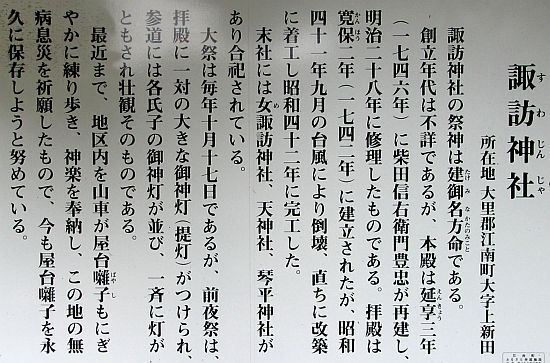 諏訪神社
すわじんじゃ
所在地 大里郡江南町大字上新田
諏訪神社の祭神は建御名方命である。
たけみなかたのみこと
創立年代は不詳であるが、本殿は延享三年
えんきょう
(一七四六年)に柴田信右衛門豊忠が再建し、
明治二十八年に修理したものである。拝殿は
寛保二年(一七四二年)に建立されたが、昭和
かんぽう
四十一年九月の台風により倒壊、直ちに改築
に着工し昭和四十二年に完工した。
末社には女諏訪神社、天神社、琴平神社が
め
あり合祀されている。
大祭は毎年十月十七日であるが、前夜祭は、
拝殿に一対の大きな御神灯(提灯)がつけられ、
参道には各氏子の御神灯が並び、一斉に灯が
ともされ壮観そのものである。
最近まで、地区内を山車が屋台囃子もにぎ
ばやし
やかに練り歩き、神楽を奉納し、この地の無
病息災を祈願したもので、今も屋台囃子を永
久に保存しようと努めている。